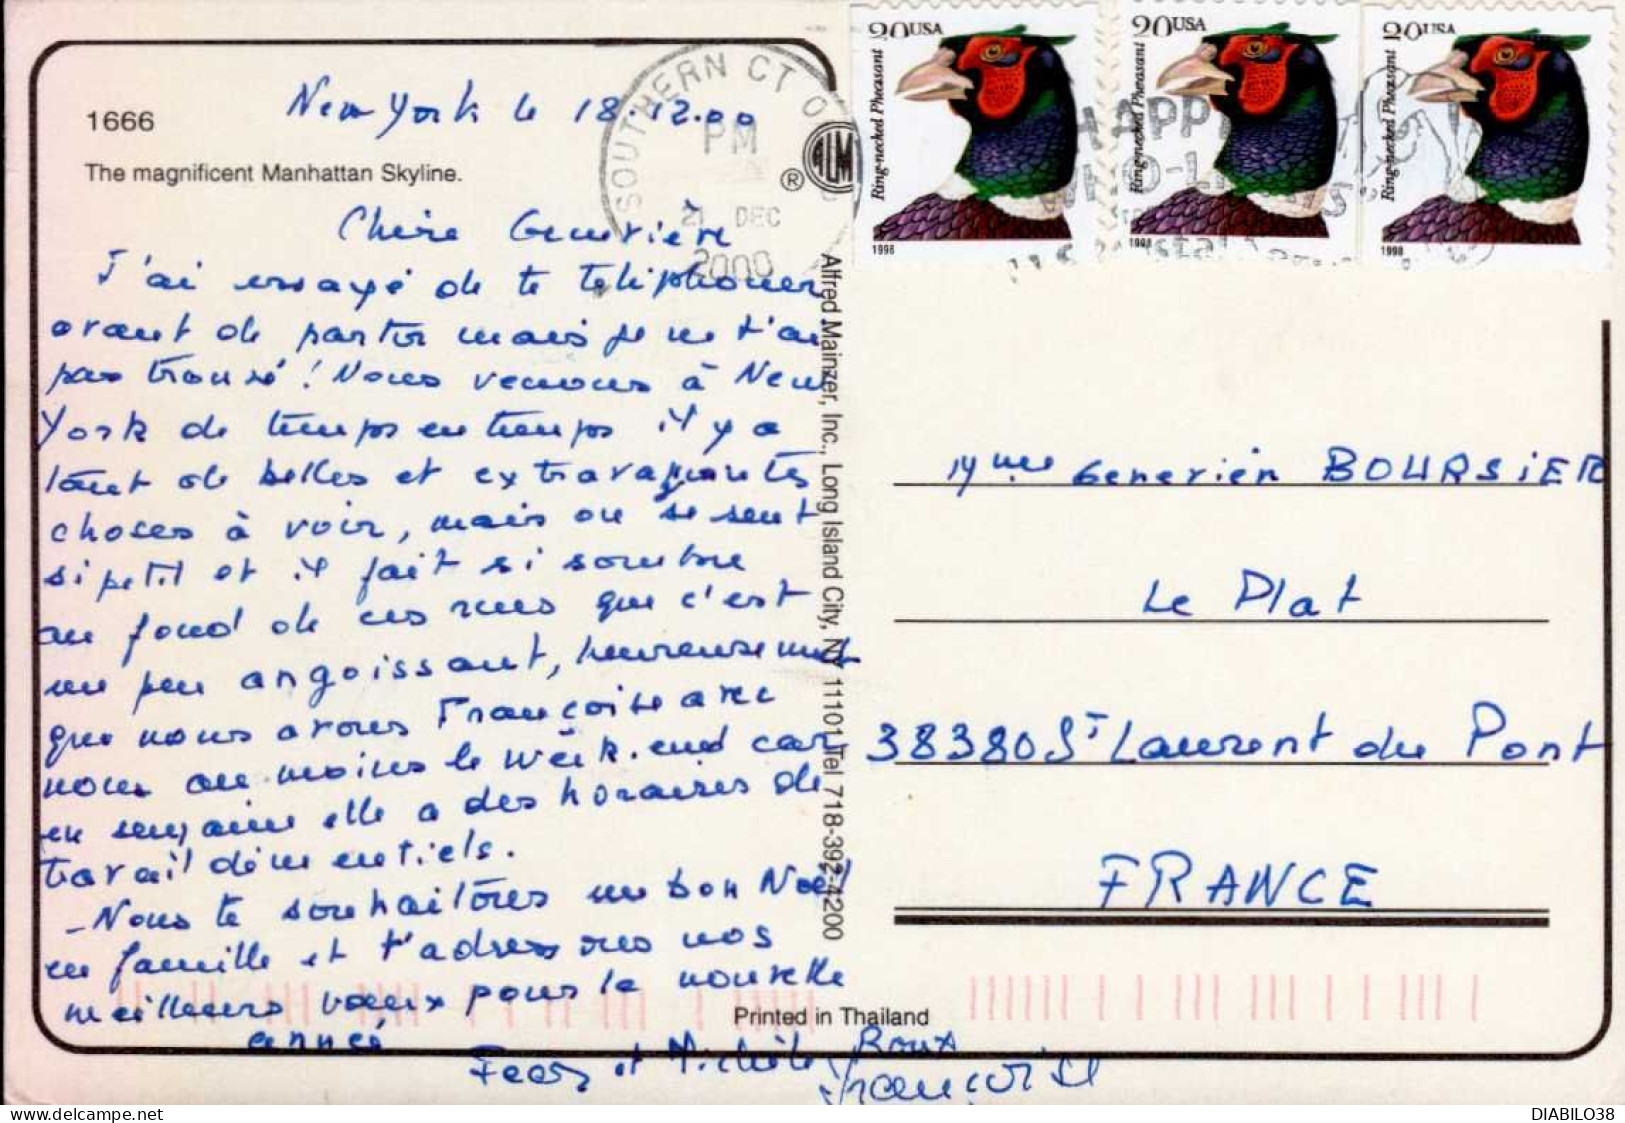 1666
The magnificent Manhattan Skyline.
New York le 18.12.00
Chère Geneviève
J'ai essayé de te téléphoner
avant de partir mais je ne t'ai
pas trouvé! Nous venons à New
York de temps en temps il y a
tant de belles et extravagantes
choses à voir, mais on se sent
si petit et il fait si sombre
au fond de ces rues que c'est
un peu angoissant, heureusement
que nous avons Françoise avec
nous au moins le wèek.end car
en semaine elle a des horaires de
travail démentiels.
- Nous te souhaitons un bon Noël
en famille et t'adressons nos
meilleurs voeux pour la nouvelle
année
et Michèle Roux
Françoise
SOUTHERN CT
PM
21 DEC
2000
®
Alfred Mainzer, Inc., Long Island City, NY 11101 Tel 718-392-4200
Printed in Thailand
20USA
Ring-necked Pheasant
1998
20USA
Ring-necked Pheasant
1998
20USA
Ring-necked Pheasant
1998
HAPPY
Mme BOURSIER
Le Plat
38380 St Laurent du Pont
FRANCE
DIABILO38